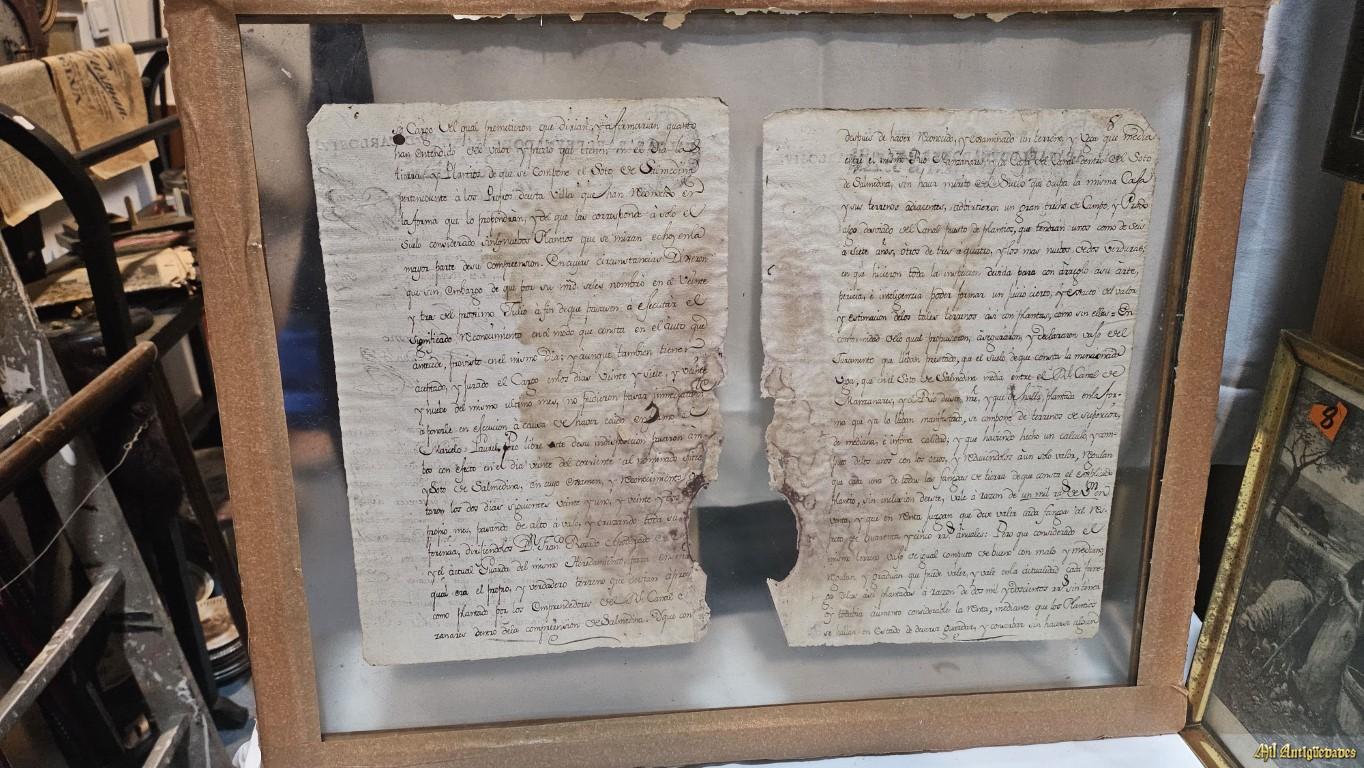 su Cargo del qual prometieron que dirian, y afirmarian quanto
han entendido del valor, y precio que tienen en el dia las
tierras, y Plantios de que se Compone el Soto de Salmedina
perteneciente à los Propios de esta Villa que han reconocido en
la forma que lo propondran, y de que las corresponde à solo el
Suelo considerado sin los nuebos Plantios que se miran echos en la
mayor parte de su comprension. En cuias circunstancias Dixeron
que sin embargo de que por su mrd. se les nombrò en el veinte
y tres del proximo Julio à fin de que pasasen à efectuar el
significado reconocimiento en el modo que consta en el Auto que
antecede, proveido en el mismo dia; y aunque tambien tienen
aceptado, y jurado el Cargo en los dias veinte y siete, y veinte
y nuebe del mismo ultimo mes, no pudieron pasar inmediatam.
à ponerle en execucion à causa de haver caido enfermo
Marcelo pero libre este de su indisposicion pasaron am-
bos con efecto en el dia veinte del corriente al nominado sitio
y Soto de Salmedina, en cuyo examen, y reconocimiento
los dos dias siguientes veinte y uno, y veinte y dos
propio mes, pasando de alto à vajo, y cruzando toda su
ferencia, dirigiendolos Dn. Franco. Rosado
y el actual Guarda del mismo Heredamiento
qual era el propio, y verdadero terreno que
como plantado por los Emprendedores del Rl. Canal de
zanares dentro de la comprension de Salmedina. Y que con
8
despues de haver reconocido, y examinado un terreno, y Vga. que media
entre el mismo Rio Manzanares, y la Caja del Canal dentro del Soto
de Salmedina, sin hacer merito del Suelo que ocupa la misma Casa
y sus terrenos adiacentes, advirtieron un gran trecho de Campo, y Prado
algo desviado del Canal puesto de plantios, que tendran unos como de seis
à siete años, otros de tres à quatro, y los mas nuebos de dos verduras;
en que hicieron toda la inspeccion devida para con arreglo à su arte,
pericia, è inteligencia poder formar un juicio cierto, y exacto del valor
y estimacion de los tales terrenos asi con plantas, como sin ellas = En
conformidad de lo qual propusieron, aseguraron, y declararon vajo del
Juramento que llevan prestado, que el suelo de que consta la mencionada
Vga. que en el Soto de Salmedina media entre el Rl. Canal de
Manzanares, y el Rio de este nre. y que se halla plantada en la for-
ma que ya lo dexan manifestado, se compone de terrenos de superior,
de mediana, è infima calidad; y que haviendo hecho un calculo, y com-
puto de los unos con los otros, y reduciendolos à un solo valor, regulan
que cada una de todas las fanegas de tierra de que consta el explicado
plantio, sin inclusion de este, vale à razon de un mil rs. de Vn. en
venta, y que en renta juzgan que deve valer cada fanega al res-
pecto de quarenta y cinco rs. anuales: Pero que considerado el
mismo terreno vajo de igual computo de bueno con malo, y mediano
regulan, y graduan que puede valer, y vale en la actualidad cada fane-
ga de las asi plantadas à razon de dos mil y doscientos rs. sin tener
todabia aumento considerable la renta, mediante que los Plantios
se hallan en estado de deverse guardar, y conservar sin hacerse algun
8
Mil Antigüedades